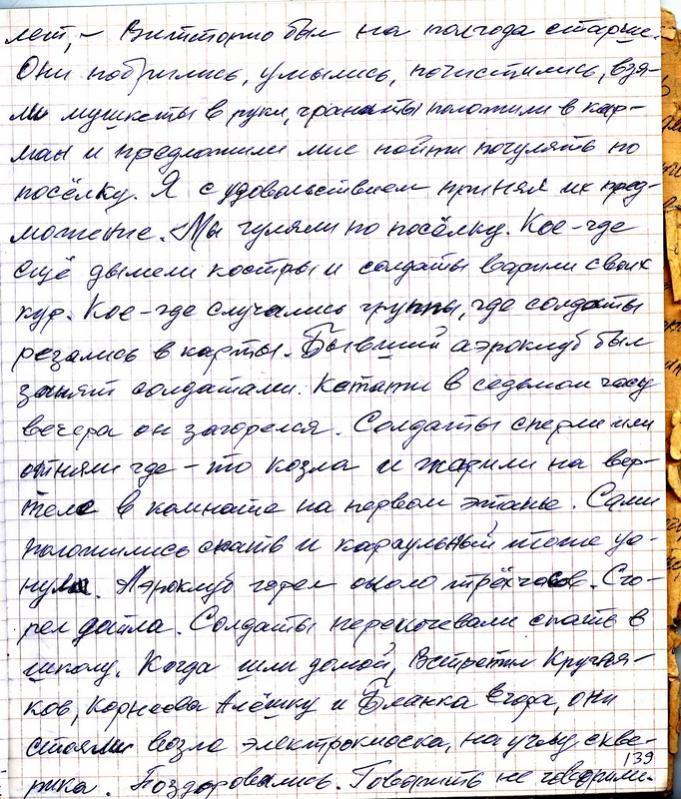 лет, – Витторио был на полгода старше.
Они побрились, умылись, почистились, взя-
ли мушкеты в руки, гранаты положили в кар-
ман и предложили мне пойти погулять по
посёлку. Я с удовольствием принял их пред-
ложение. Мы гуляли по посёлку. Кое-где
ещё дымели костры и солдаты варили своих
кур. Кое-где случались группы, где солдаты
резались в карты. Бывший аэроклуб был
занят солдатами. Кстати в седьмом часу
вечера он загорелся. Солдаты сперли или
отняли где-то козла и жарили на вер-
теле в комнате на первом этаже. Сами
положились спать и караульный тоже ус-
нул. Аэроклуб горел около трёх часов. Сго-
рел дотла. Солдаты перекочевали спать в
школу. Когда шли домой, встретил Кружа-
ков, Корнеева Алёшку и Бланка Егора, они
стояли возле электрокиоска, на углу скве-
рика. Поздоровались. Говорить не говорили.
139